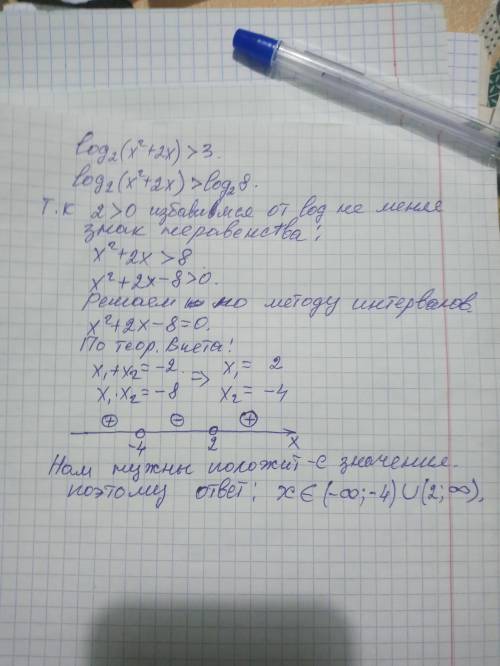 log₂(x²+2x)>3.
log₂(x²+2x)>log₂8.
Т.к 2>0 избавимся от log не меняя
знак неравенства:
x²+2x>8
x²+2x-8>0.
Решаем по методу интервалов.
x²+2x-8=0.
По теор. Виета:
x₁+x₂=-2. => x₁= 2
x₁·x₂=-8 x₂=-4
+ - +
-4 2 x
Нам нужны положит-е значения.
поэтому ответ: x∈(-∞;-4)∪(2;∞).